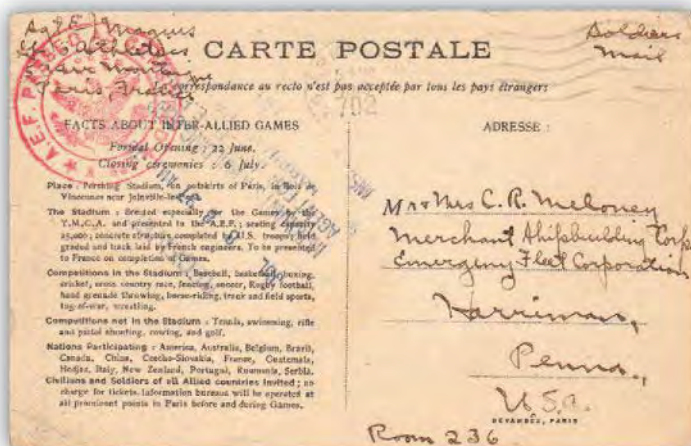 Soldiers
Mail
CARTE POSTALE
Correspondance au recto n'est pas acceptée par tous les pays étrangers
A.E.F. PASSED
702
FACTS ABOUT INTER-ALLIED GAMES
Formal Opening : 22 June.
Closing ceremonies : 6 July.
Place : Pershing Stadium, on outskirts of Paris, in Bois de
Vincennes near Joinville-le-
The Stadium : Erected especially for the Games by the
Y.M.C.A. and presented to the A.E.F.; seating capacity
25,000; concrete structure completed by U.S. troops; field
graded and track laid by French engineers. To be presented
to France on completion of Games.
Competitions in the Stadium : Baseball, basketball, boxing,
cricket, cross country race, fencing, soccer, Rugby football,
hand grenade throwing, horse-riding, track and field sports,
tug-of-war, wrestling.
Competitions not in the Stadium : Tennis, swimming, rifle
and pistol shooting, rowing, and golf.
Nations Participating : America, Australia, Belgium, Brazil,
Canada, China, Czecho-Slovakia, France, Guatemala,
Hedjaz, Italy, New Zealand, Portugal, Roumania, Serbia.
Civilians and Soldiers of all Allied countries invited; no
charge for tickets. Information bureaus will be operated at
all prominent points in Paris before and during Games.
ADRESSE :
Mr & Mrs C. R. Meloney
Merchant Shipbuilding Corp
Emergency Fleet Corporation
Harriman,
Penna.,
U.S.A.
DEVAMBEZ, PARIS
Room 236